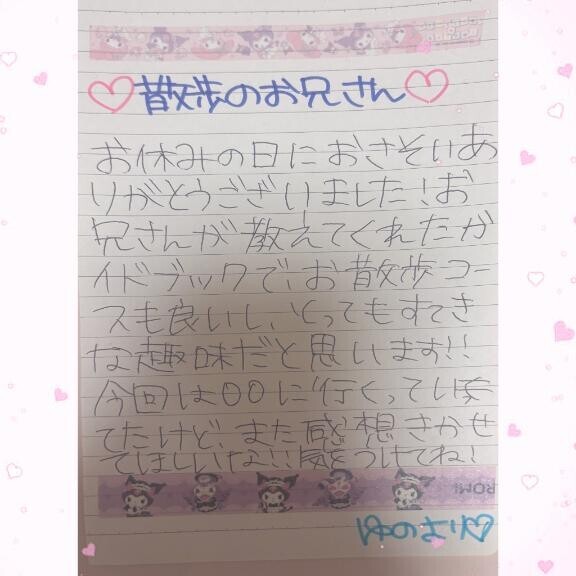 散歩のお兄さん
お休みの日におさそいあ
りがとうございました!お
兄さんが教えてくれたガ
イドブックで、お散歩コー
スも良いし、とってもすてき
な趣味だと思います!!
今回は〇〇に行くって
てたけど、また感想きかせ
てほしいな!!気をつけてね!
ROMI
ゆのより